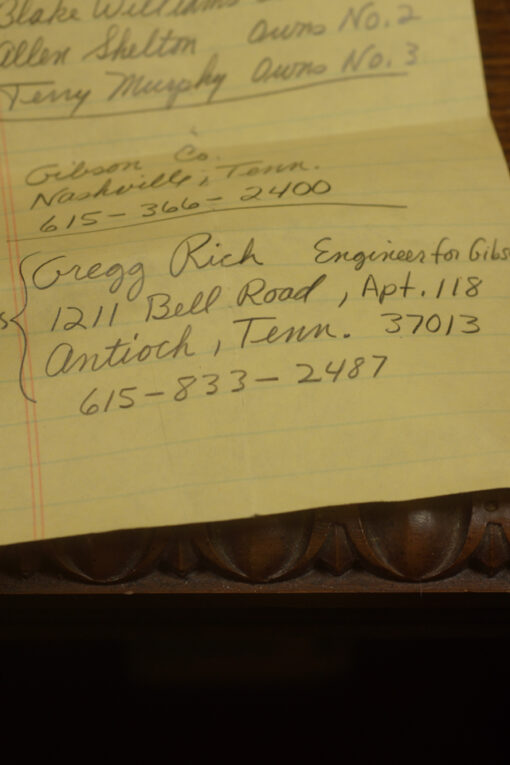 Blake Williams
Allen Shelton owns No. 2
Terry Murphy owns No. 3
Gibson Co.
Nashville, Tenn.
615-366-2400
Gregg Rich Engineer for Gibs
1211 Bell Road, Apt. 118
Antioch, Tenn. 37013
615-833-2487